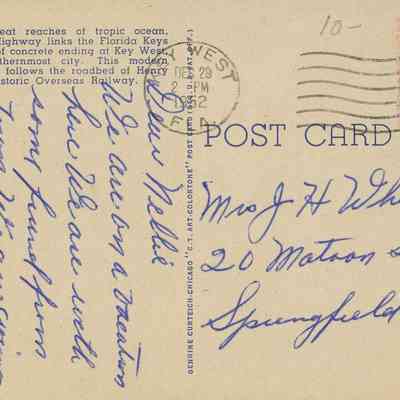 eat reaches of tropic ocean.
Highway links the Florida Keys
of concrete ending at Key West,
thernmost city. This modern
follows the roadbed of Henry
storic Overseas Railway.
Dear Nellie
We are on a vacation
here We are with
some friend from
10-
KEY WEST
DEC 29
2 PM
1952
FLA.
GENUINE CURTEICH-CHICAGO "C.T. ART-COLORTONE" POST CARD (REG. U.S. PAT. OFF.)
POST CARD
Mrs J H Whi
20 Matoon S
Springfield